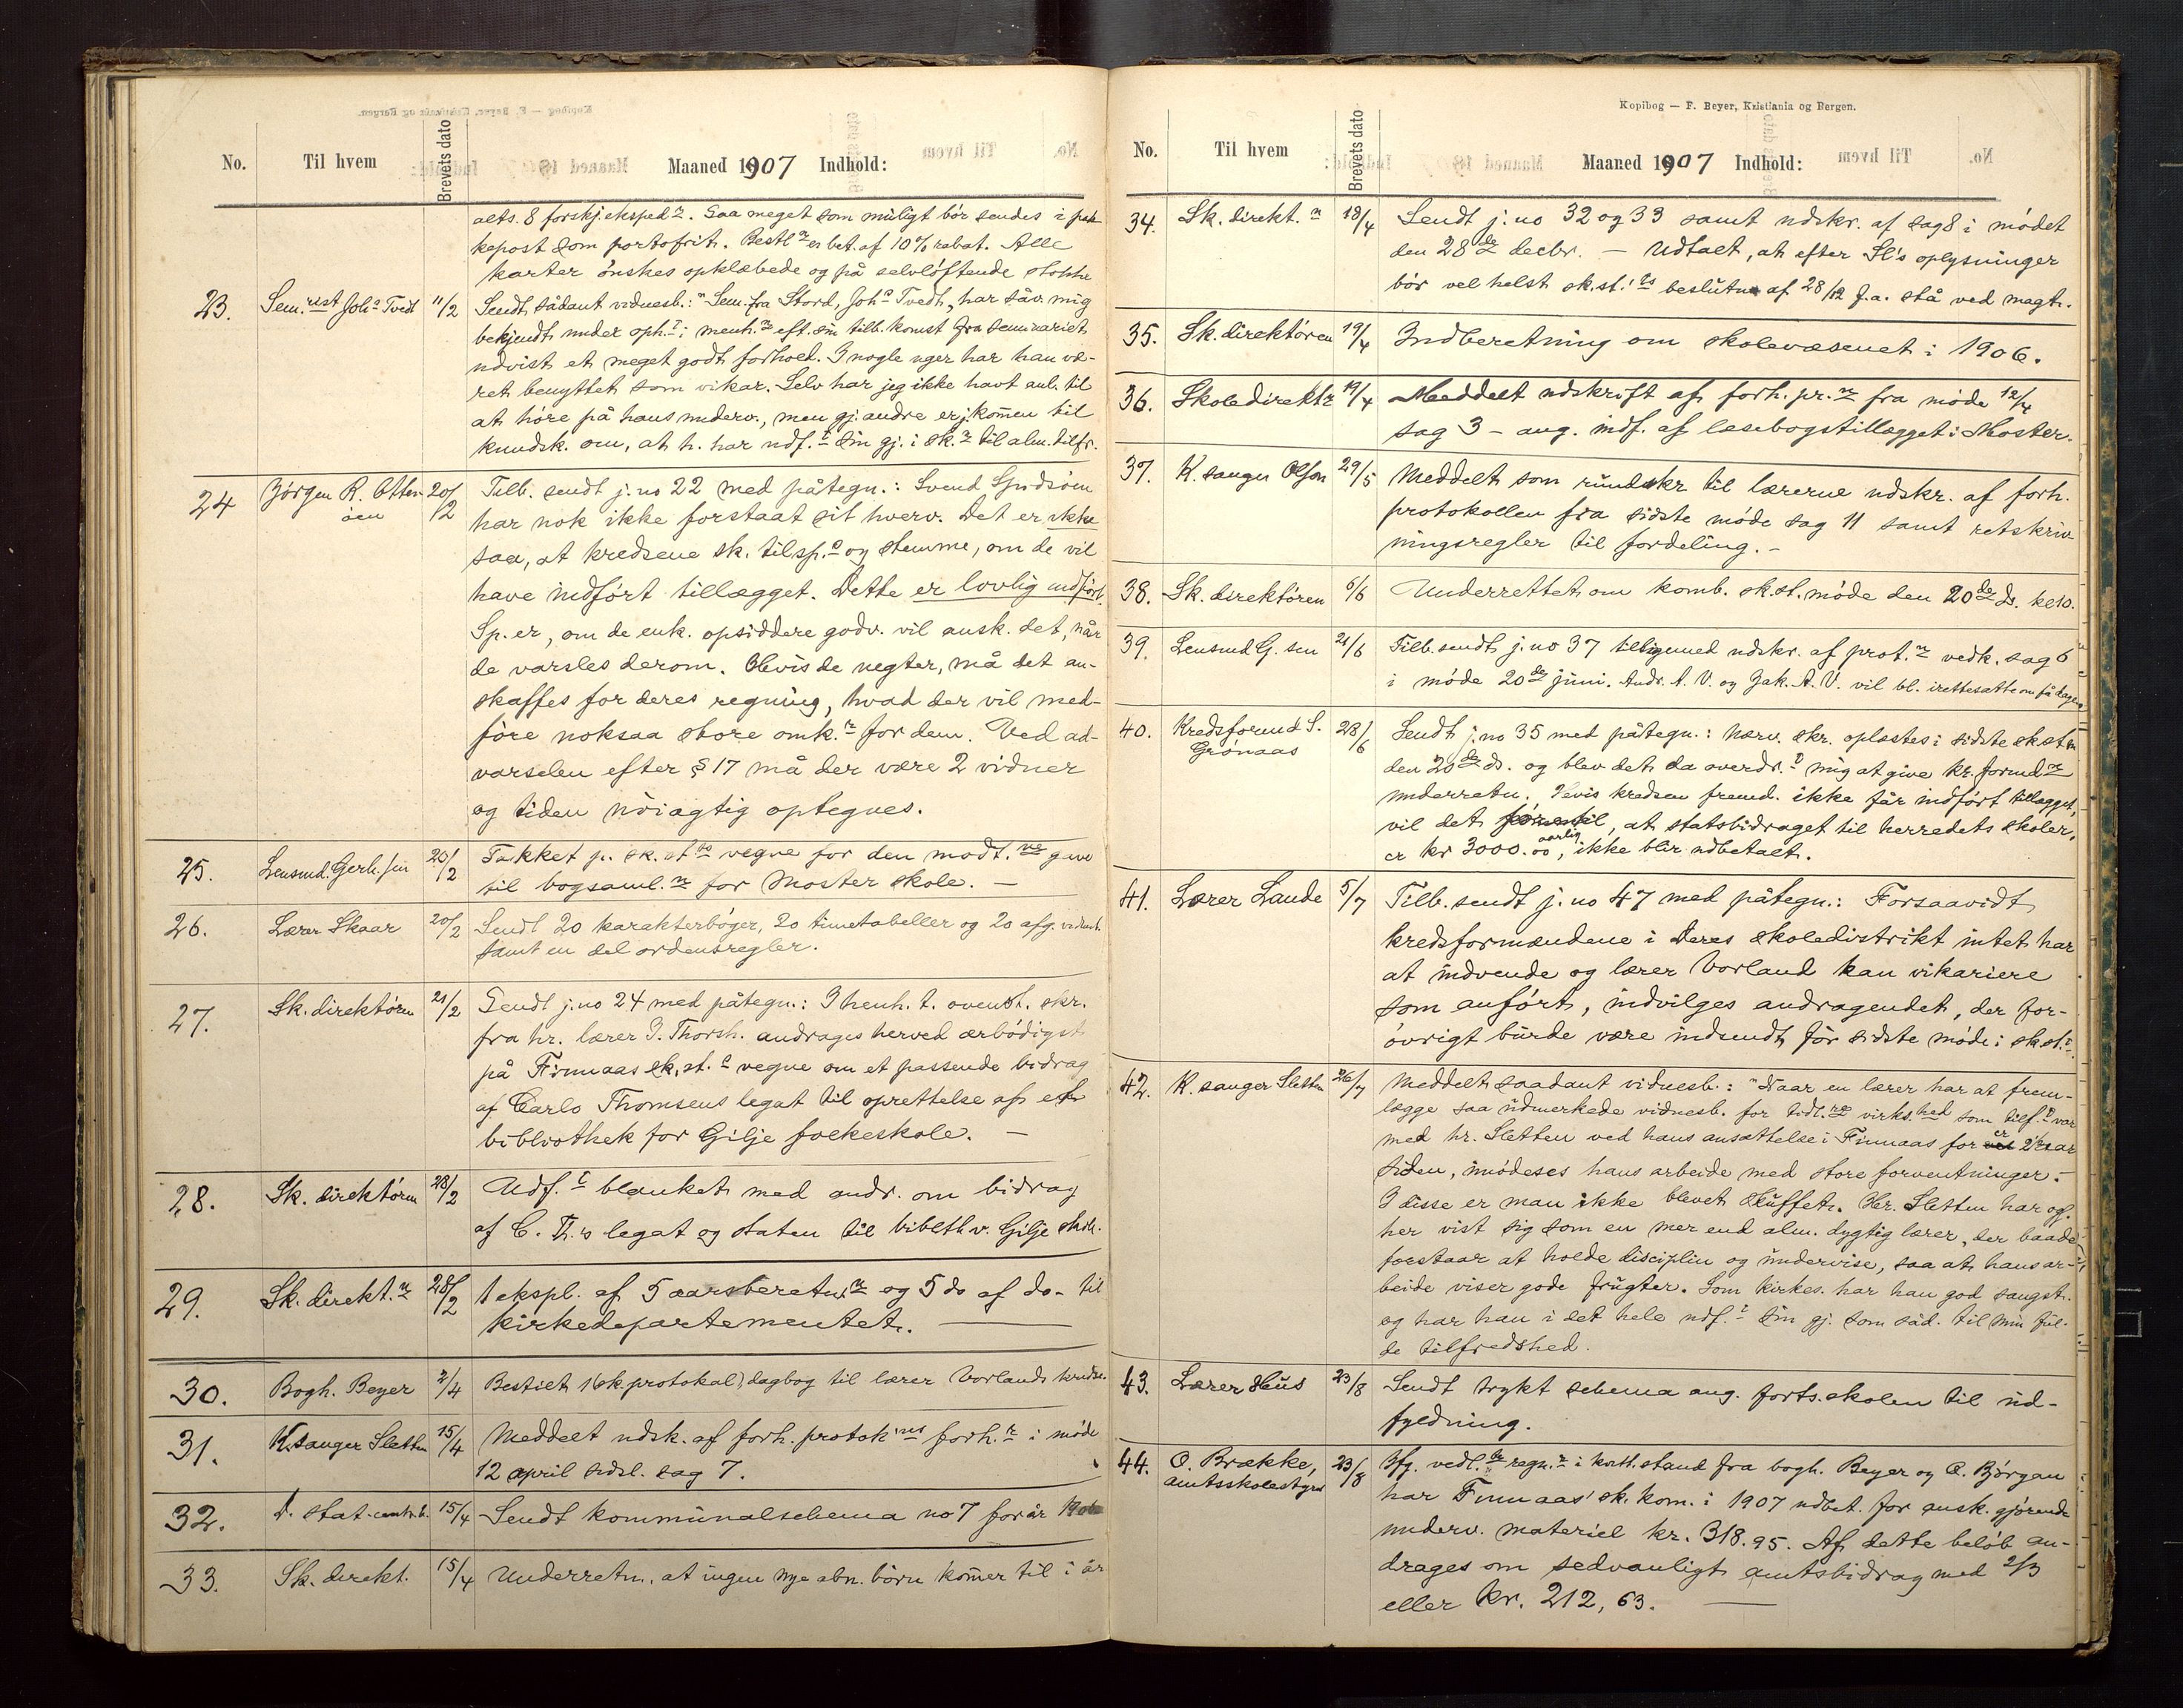 No. Til hvem Brevets dato Maaned 1907 Indhold:
alts. 8 forskj. eksped.n. Saa meget som muligt bör sendes i pak-
kepost som portofrit. Bestl.n er bet. af 10% rabat. Alle
karter önskes opklæbede og på selvlöftende stokke
23. Sem.rist Joh.s Tvedt 11/2 Sendt sådant vidnesb.: "Sem. fra Stord, Joh.s Tvedt, har såv. mig
bekjendt under oph.t i menh.n eft. sin tilb.komst fra seminariet
udvist et meget godt forhold. I nogle uger har han væ-
ret benyttet som vikar. Selv har jeg ikke havt anl. til
at höre på hans underv., men gj. andre er j. kommen til
kundsk. om, at h. har udf.t sin gj. i sk.n til alm. tilfr.
24 Jörgen R. Otter-
öen 20/2 Tilb. sendt j. no 22 med påtegn.: Svend
har nok ikke forstaat sit hverv. Det er ikke
saa, at kredsene sk. tilsp.s og stemme, om de vil
have indfört tillægget. Dette er lovlig indfört.
Sp. er, om de enk. opsiddere godv. vil ansk. det, når
de varsles derom. Hvis de negter, må det an-
skaffes for deres regning, hvad der vil med-
före noksaa store omk.r for dem. Ved ad-
varselen efter § 17 må der være 2 vidner
og tiden nöiagtig optegnes.
25. Lensmd. Gerh.sen 20/2 Takket p. sk.st.ts vegne for den modt.ne gave
til bogsaml.n for Moster skole. —
26. Lærer Skaar 20/2 Sendt 20 karakterböger, 20 timetabeller og 20 afg. vidnesb.
samt en del ordensregler.
27. Sk. direktören 21/2 Sendt j. no 24 med påtegn.: I henh. t. ovenst. skr.
fra hr. lærer I. Thorsh. andrages herved ærbödigst
på Finnaas sk.st.s vegne om et passende bidrag
af Carlo Thomsens legat til oprettelse af et
bibliothek for Gilje folkeskole. —
28. Sk. direktören 28/2 Udf.t blanket med andr. om bidrag
af C. Th.s legat og staten til biblth. v. Gilje skole.
29. Sk. direkt.n 28/2 1 ekspl. af 5 aarsberetn.n og 5 do af do - til
kirkedepartementet. —
30. Bogh. Beyer 2/4 Bestilt 1 (sk. protokol) dagbog til lærer Vorlands kredse.
31. K. sanger Sletten 15/4 Meddelt udsk. af forh. protok.ns forh.r i möde
12 april sidsl. sag 7.
32. D. stat. centr.b. 15/4 Sendt kommunalschema no 7 for år 1906
33. Sk. direkt. 15/4 Underretn., at ingen nye abn. börn kommer til i år
Kopibog — F. Beyer, Kristiania og Bergen.
No. Til hvem Brevets dato Maaned 1907 Indhold:
34. Sk. direkt.n 18/4 Sendt j. no 32 og 33 samt udskr. af sag 8 i mödet
den 28de decbr. — Udtalt, at efter Sl's oplysninger
bör vel helst sk.st.'ts beslutn. af 28/12 f.a. stå ved magt.
35. Sk. direktören 19/4 Indberetning om skolevæsenet i 1906.
36. Skoledirekt.r 19/4 Meddelt udskrift af forh. pr.n fra möde 12/4
sag 3 — ang. indf. af læsebogstillægget i Moster.
37. K. sanger Olsen 29/5 Meddelt som rundskr til lærerne udskr. af forh.
protokollen fra sidste möde sag 11 samt retskriv-
ningsregler til fordeling. —
38. Sk. direktören 6/6 Underrettet om komb. sk.st. möde den 20de ds. kl 10.
39. Lensmd G. sen 21/6 Tilb. sendt j. no 37 tilligemed udskr. af prot.n vedk. sag 6
i möde 20de juni. Andr. A. V. og Jak. A. V. vil bl. irettesatte om få dage.
40. Kredsformd S.
Grönaas 28/6 Sendt j. no 35 med påtegn.: nærv. skr. oplæstes i sidste sk.st.m.
den 20de ds. og blev det da overdr.t mig at give kr. formd.n
underretn. Hvis kredsen fremd. ikke får indfört tillægget,
vil det före til, at statsbidraget til herredets skoler,
er kr 3000.00 aarlig, ikke blir udbetalt.
41. Lærer Lande 5/7 Tilb. sendt j. no 47 med påtegn.: Forsaavidt
kredsformændene i Deres skoledistrikt intet har
at indvende og lærer Vorland kan vikariere
som anfört, indvilges andragendet, der for-
övrigt burde være indsendt för sidste möde i sk.st.t.
42. K. sanger Sletten 26/7 Meddelt saadant vidnesb.: "Naar en lærer har at frem-
lægge saa udmerkede vidnesb. for tidl.re virks.hed som tilf.t var
med hr. Sletten ved hans ansættelse i Finnaas for er 2½ aar
siden, imödeses hans arbeide med store forventninger. —
I disse er man ikke blevet skuffet. Hr. Sletten har og.
her vist sig som en mer end alm. dygtig lærer, der baade
forstaar at holde disciplin og undervise, saa at hans ar-
beide viser gode frugter. Som kirkes. har han god sangst.
og har han i det hele udf.t sin gj. som såd. til min ful-
de tilfredshed.
43. Lærer Hus 23/8 Sendt trykt schema ang. forts.skolen til ud-
fyldning.
44. O. Brække,
amtsskolestyret 23/8 Ifg. vedl.te regn.r i kvitt. stand fra bogh. Beyer og O. Björgan
har Finnaas' sk. kom. i 1907 udbet. for ansk. gjörende
underv. materiel kr. 318.95. Af dette belöb an-
drages om sedvanligt amtsbidrag med 2/3
eller kr. 212,63. —